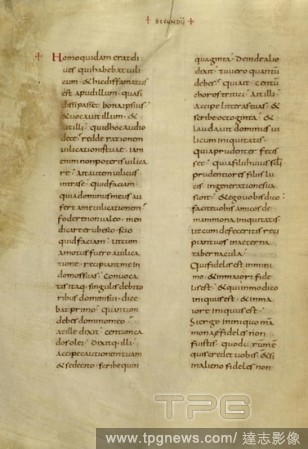 + SECUNDU +
+ Homo quidam erat di
ves qui habebat vili
cum & hic diffamatus
est apud illum quasi
dissipasset bona ipsius
& vocavit illum &
ait illi quid hoc audio
de te redde rationem
vilicationis tuae iam
enim non poteris vilica
re ait autem vilicus
intra se quid faciam
quia dominus meus au
fert a me vilicationem
fodere non valeo men
dicare erubesco scio
quid faciam ut cum
amotus fuero a vilica
tione recipiant me in
domos suas convoca
tis itaq singulis debito
ribus domini sui dice
bat primo quantum
debes domino meo
at ille dixit centum ca
dos olei dixitq illi
accipe cautionem tuam
& sede cito scribe quin
quaginta deinde alio
dixit tu vero quantu
debes qui ait centu
choros tritici ait illi
accipe litteras tuas &
scribe octoginta &
laudavit dominus vi
licum iniquitatis
quia prudenter fecis
set quia filii huius scli
prudentiores filiis lu
cis in generatione sua
sunt & ego vobis dico
facite vobis amicos de
mammona iniquitatis
ut cum defeceritis reci
piant vos in aeterna
tabernacula
Qui fidelis est in mini
mo & in maiori fide
lis est & qui in modico
iniquus est & in ma
iori iniquus est
Si ergo in iniquo ma
mona fideles non
fuistis quod verum e
quis credet vobis & si
in alieno fideles non
TPG
www.tpgnews.com/達志影像